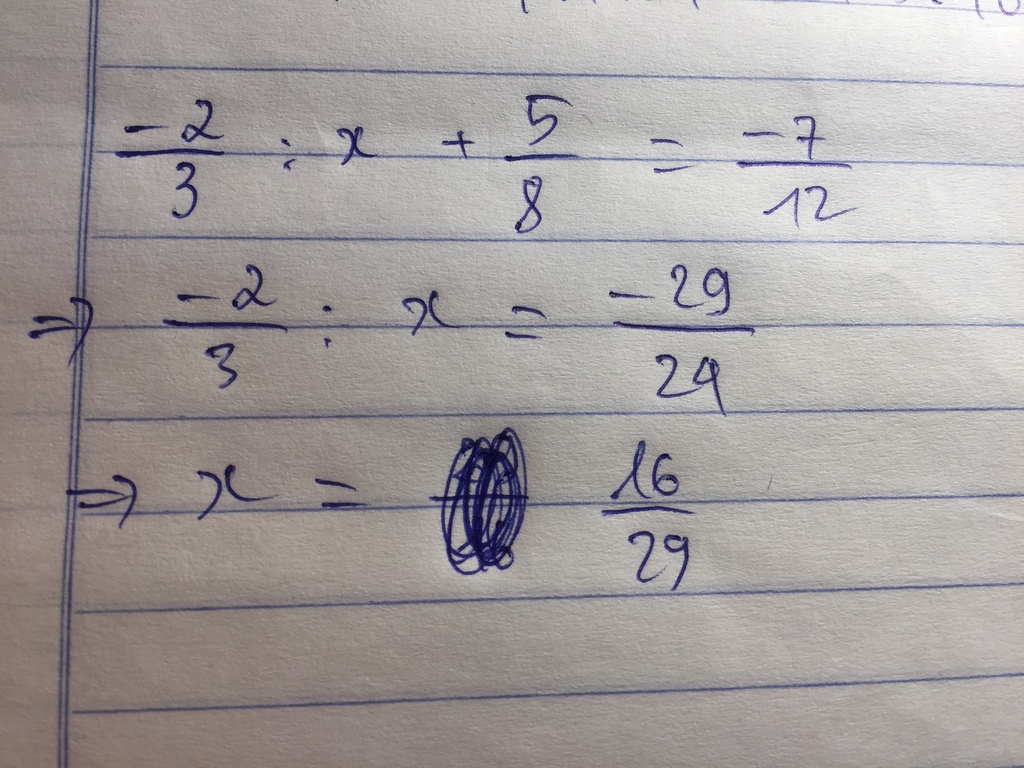 -2/3 : x + 5/8 = -7/12
⇒ -2/3 : x = -29/24
⇒ x = 16/29